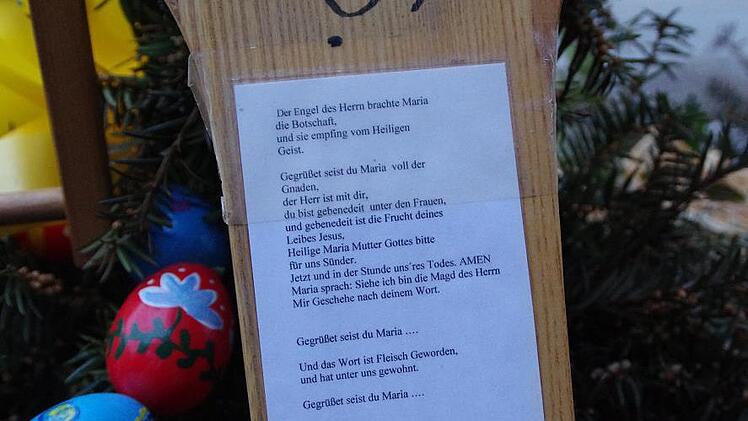 Der Engel des Herrn brachte Maria
die Botschaft,
und sie empfing vom Heiligen
Geist.
Gegrüßet seist du Maria voll der
Gnaden,
der Herr ist mit dir,
du bist gebenedeit unter den Frauen,
und gebenedeit ist die Frucht deines
Leibes Jesus,
Heilige Maria Mutter Gottes bitte
für uns Sünder.
Jetzt und in der Stunde uns´res Todes. AMEN
Maria sprach: Siehe ich bin die Magd des Herrn
Mir Geschehe nach deinem Wort.
Gegrüßet seist du Maria ....
Und das Wort ist Fleisch Geworden,
und hat unter uns gewohnt.
Gegrüßet seist du Maria ....